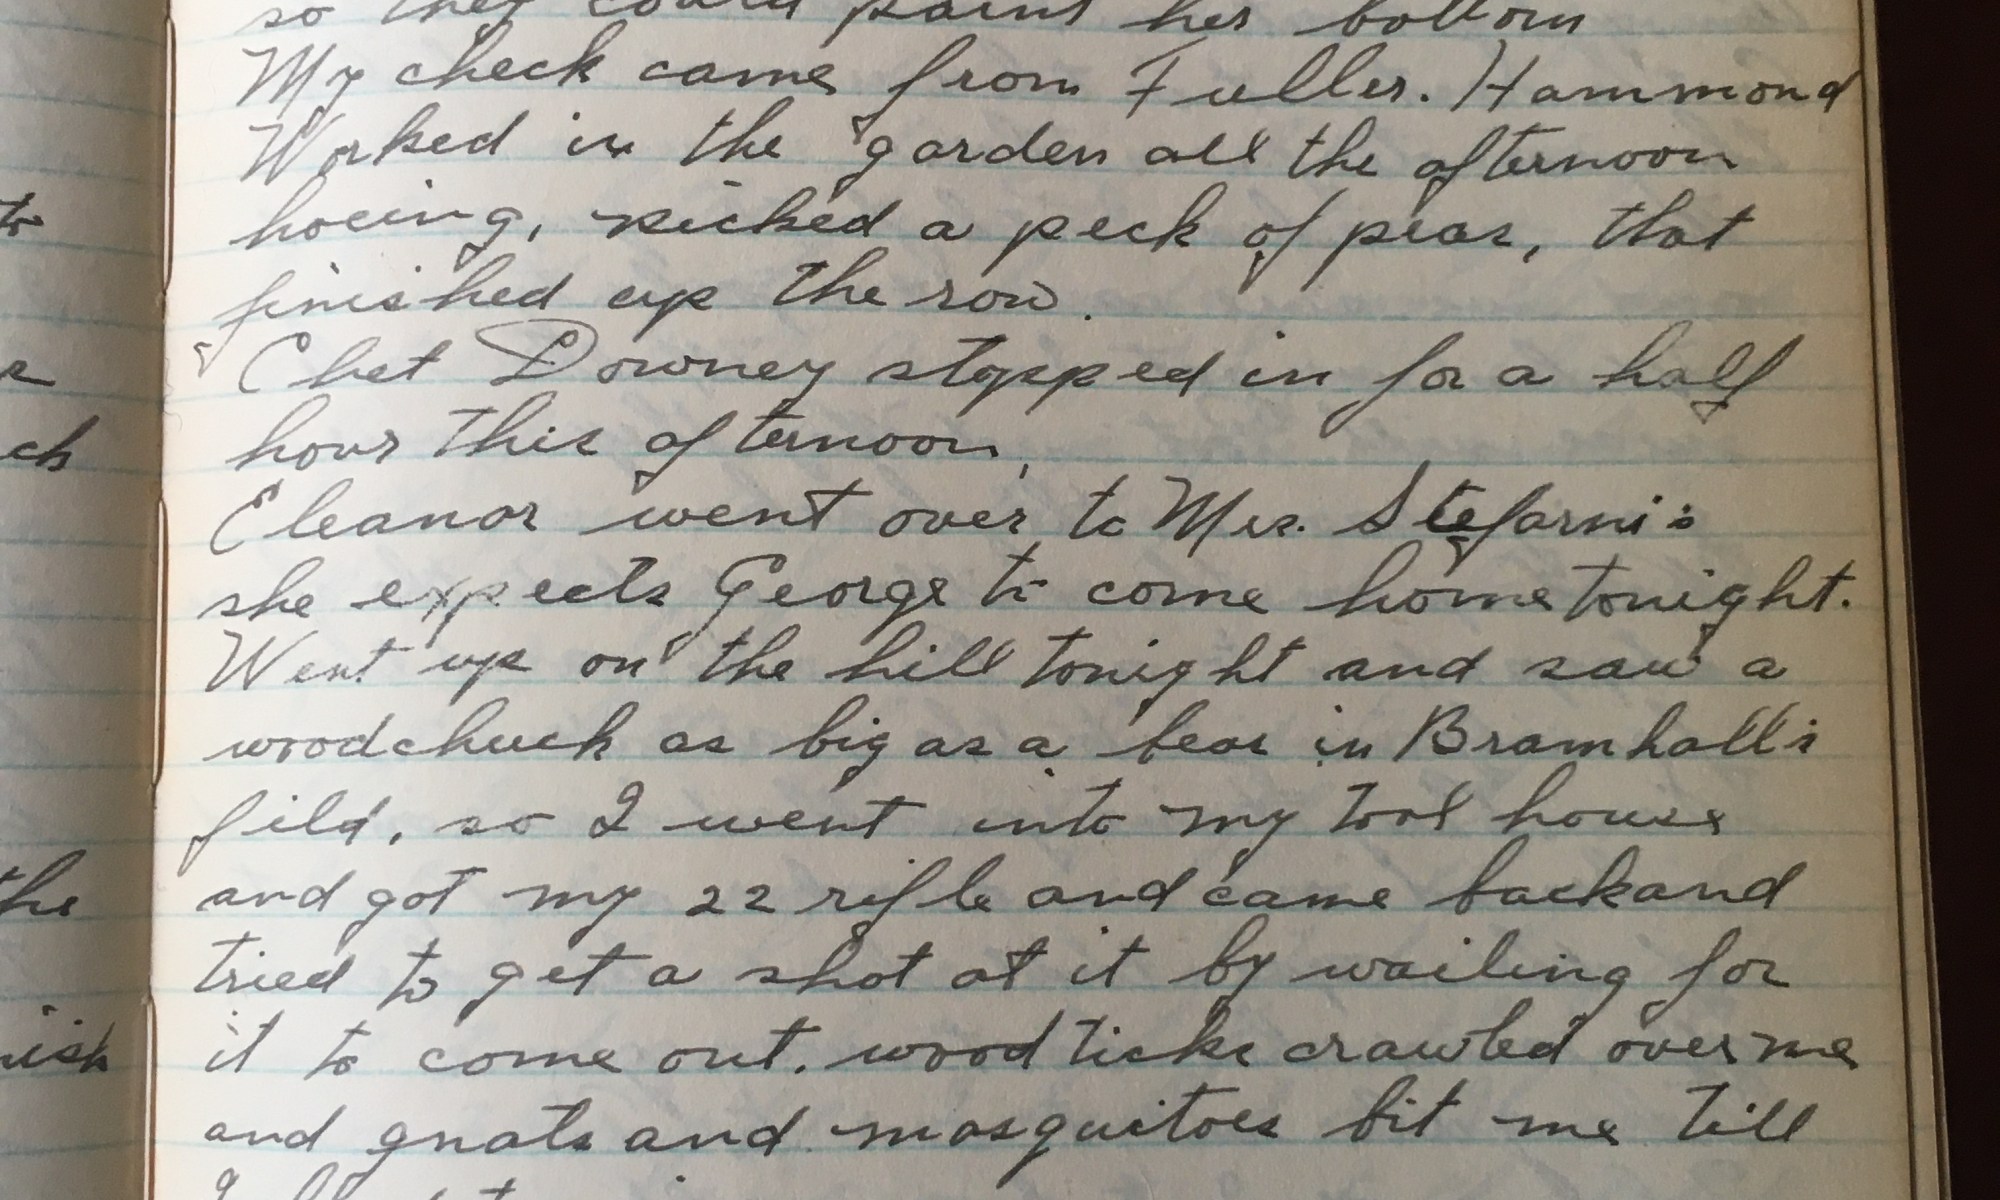 so they could paint her bottom
My check came from Fuller. Hammond
Worked in the garden all the afternoon
hoeing, picked a peck of peas, that
finished up the row.
Chet Downey stopped in for a half
hour this afternoon.
Eleanor went over to Mrs. Stefarni's
she expects George to come home tonight.
Went up on the hill tonight and saw a
woodchuck as big as a bear in Bramhall's
field, so I went into my tool house
and got my 22 rifle and came back and
tried to get a shot at it by waiting for
it to come out. wood ticks crawled over me
and gnats and mosquitoes bit me till
to
ch
the
ish